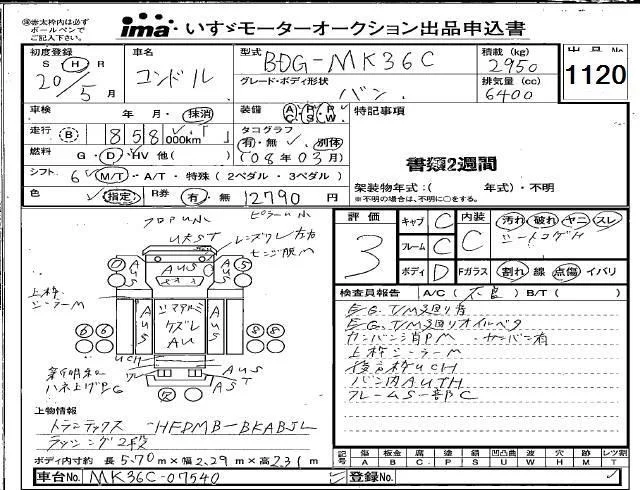 ※赤太枠内は必ず
ボールペンで
ご記入下さい。
ima いすゞモーターオークション出品申込書
初度登録 S H R 20/5月
車名 コンドル
型式 BDG-MK36C
グレード・ボディ形状 バン
積載 (kg) 2950
排気量 (cc) 6400
1120
車検 年・月・抹消
装備 A/C P/S P/W
特記事項
走行 B 858 000km
タコグラフ 有・無 別体
(08年03月)
燃料 G・D・HV 他( )
書類2週間
シフト 6 M/T・A/T・特殊(2ペダル・3ペダル)
架装物年式:( 年式)・不明
※不明の場合は、不明に○をする。
色 指定 R券 有・無 12790 円
評価 3
キャブ C
フレーム C
ボディ D
内装 C 汚れ 破れ ヤニ スレ
シートコゲH
Fガラス 割れ 線 点傷 イバリ
検査員報告 A/C(不良) B/T( )
EG. T/M廻り有
EG. T/M廻りオイルベタ
カンバン消PM カンバン有
上枠シーラーM
後言枠UCH
バン内AUTH
フレームS一部C
フロアUM
UKST
レンズワレ左右
AUS
AUS
AUS
上枠
シーラーM
AUS
リアアルミ
クズレ
AU
AUS
UCH
AUS
AST
ハネ上げPG
上物情報
トランテックス HFDMB-BKABJL
ラッシング2段
ボディ内寸約 長5.70m×幅2.29m×高2.31m
記号 傷 A 板金 B 腐 C 塗 P 錆 S 凹凸曲 U 波 W 穴 H 跡 M レツ割 T
車台No. MK36C-07540
登録No.